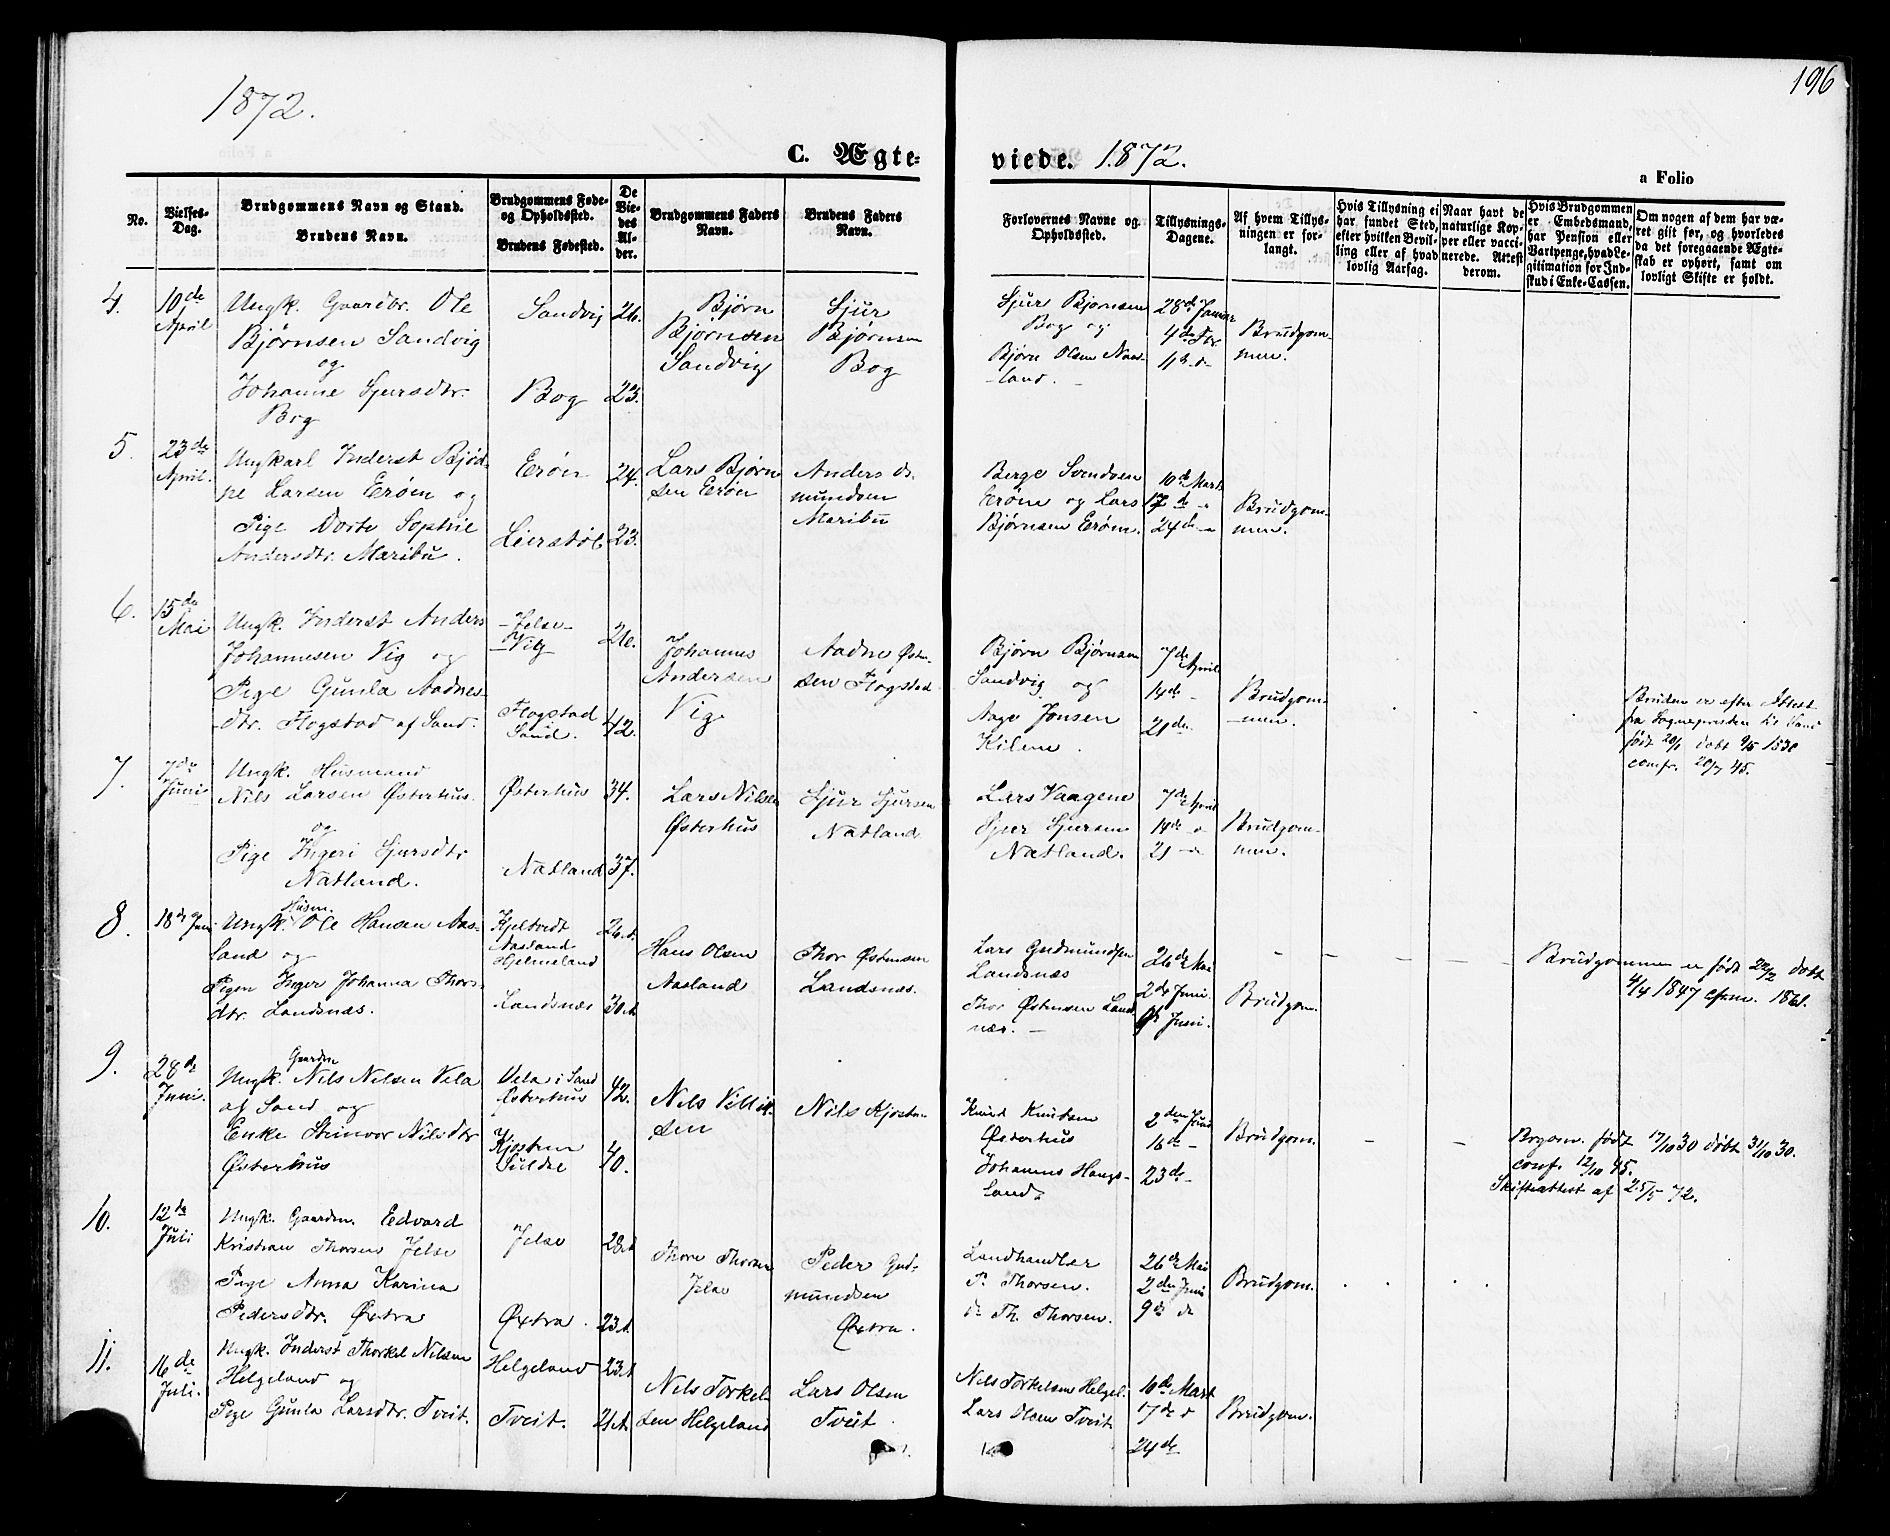 1872.
196
C. Ægte-
viede. 1872.
a Folio
No.
Vielses-
Dag.
Brudgommens Navn og Stand.
Brudens Navn.
Brudgommens Føde-
og Opholdssted.
Brudens Fødested.
De
Vie-
des
Al-
der.
Brudgommens Faders
Navn.
Brudens Faders
Navn.
Forlovernes Navne og
Opholdssted.
Tillysnings-
Dagene.
Af hvem Tillys-
ningen er for-
langt.
Hvis Tillysning ei
har fundet Sted,
efter hvilken Bevil-
ling eller af hvad
lovlig Aarsag.
Naar havt de
naturlige Kop-
per eller vacci-
nerede. Attest
derom.
Hvis Brudgommen
er Embedsmand,
har Pension eller
Vartpenge, hvad Le-
gitimation for Ind-
skud i Enke-Cassen.
Om nogen af dem har væ-
ret gift før, og hvorledes
da det foregaaende Ægte-
skab er ophørt, samt om
lovligt Skifte er holdt.
4.
10de
April
Ungk. Gaardbr. Ole
Bjørnsen Sandvig
og
Johanne Sjursdtr.
Bog
Sandvig
Bog
26.
23.
Bjørn
Bjørnsen
Sandvig
Sjur
Bjørnsen
Bog
Sjur Bjørnsen
Bog og
Bjørn Olsen Naas-
land.
28de Januar
4de Febr
11te -d-
Brudgom-
men.
5.
23de
April.
Ungkarl Inderst Bjød-
ne Larsen Erøen og
Pige Dorte Sophie
Andersdtr. Maribu.
Erøen
Leirstøl
24.
23.
Lars Bjørn
sen Erøen
Anders As-
mundsen
Maribu
Berge Svendsen
Erøen og Lars
Bjørnsen Erøen.
10de Marts
17de -
24de -
Brudgom-
men.
6.
15de
Mai
Ungk. Inderst Anders
Johannesen Vig og
Pige Gunla Aadnes-
dtr. Flogstad af Sand.
- Jelse -
- Vig
Flogstad
Sand.
26.
42.
Johannes
Andersen
Vig
Aadne Østen-
sen Flogstad
Bjørn Bjørnsen
Sandvig og
Aage Jonsen
Kilene.
7de April
14de -
21de.
Brudgom-
men.
Bruden er efter Attest
fra Sognepræsten til Sand
født 20/1 døbt 9/5 1830
comfr. 20/7 45.
7.
7de
Juni
Ungk. Husmand
Nils Larsen Østerhus.
og
Pige Ingeri Sjursdtr
Natland.
Østerhus
Natland
34.
37.
Lars Nilsen
Østerhus
Sjur Sjursen
Natland
Lars Vaagene
Sjur Sjursen
Natland.
7de April
14de -
21 -
Brudgom-
men.
8.
18de Juni
Ungk. Husm. Ole Hansen Aas-
land og
Pigen Inger Johanna Thors-
dtr. Landsnæs.
Kjeltvedt
Aasland
Hjelmeland
Landsnæs
26.
30.
Hans Olsen
Aasland
Thor Østensen
Landsnæs.
Lars Gudmundsen
Landsnæs
Thor Østensen Lands
næs. -
26de Mai
2de Juni.
9de Juni.
Brudgom.
Brudgommen er født 22/2 døbt
4/4 1847 cfrm. 1861.
9.
28de
Juni.
Ungk. Gaardm Nils Nilsen Vela
af Sand og
Enke Steinvor Nilsdtr
Østerhus
Vela i Sand
Østerhus
Kjosten
Suldal
42.
40.
Nils Villik-
sen
Nils Kjosten
Knud Knutsen
Østerhus
Johannes Haugs-
land
2den Juni
16de -
23de -
Brudgom.
Brgom. født 17/10 30 døbt 31/10 30.
conf. 12/10 45.
Skifteattest af 25/5 72.
10.
12de
Juli
Ungk. Gaardm. Edvard
Kristian Thorsen Jelse
Pige Anna Karina
Pedersdtr. Øxtra
Jelse
Øxtra.
28.
23.
Thore Thorsen
Jelse
Peder Gud-
mundsen
Øxtra.
Landhandler
P. Thorsen.
do Th. Thorsen.
26de Mai
2den Juni
9de de
Brudgom.
11.
16de
Juli.
Ungk. Inderst Thorkel Nilsen
Helgeland og
Pige Gunla Larsdtr. Tveit.
Helgeland
Tveit.
23.
21.
Nils Torkel-
sen Helgeland
Lars Olsen
Tveit
Nils Torkelsen Helgel.
Lars Olsen Tveit
10de Mart
17de
24de
Brudgom.